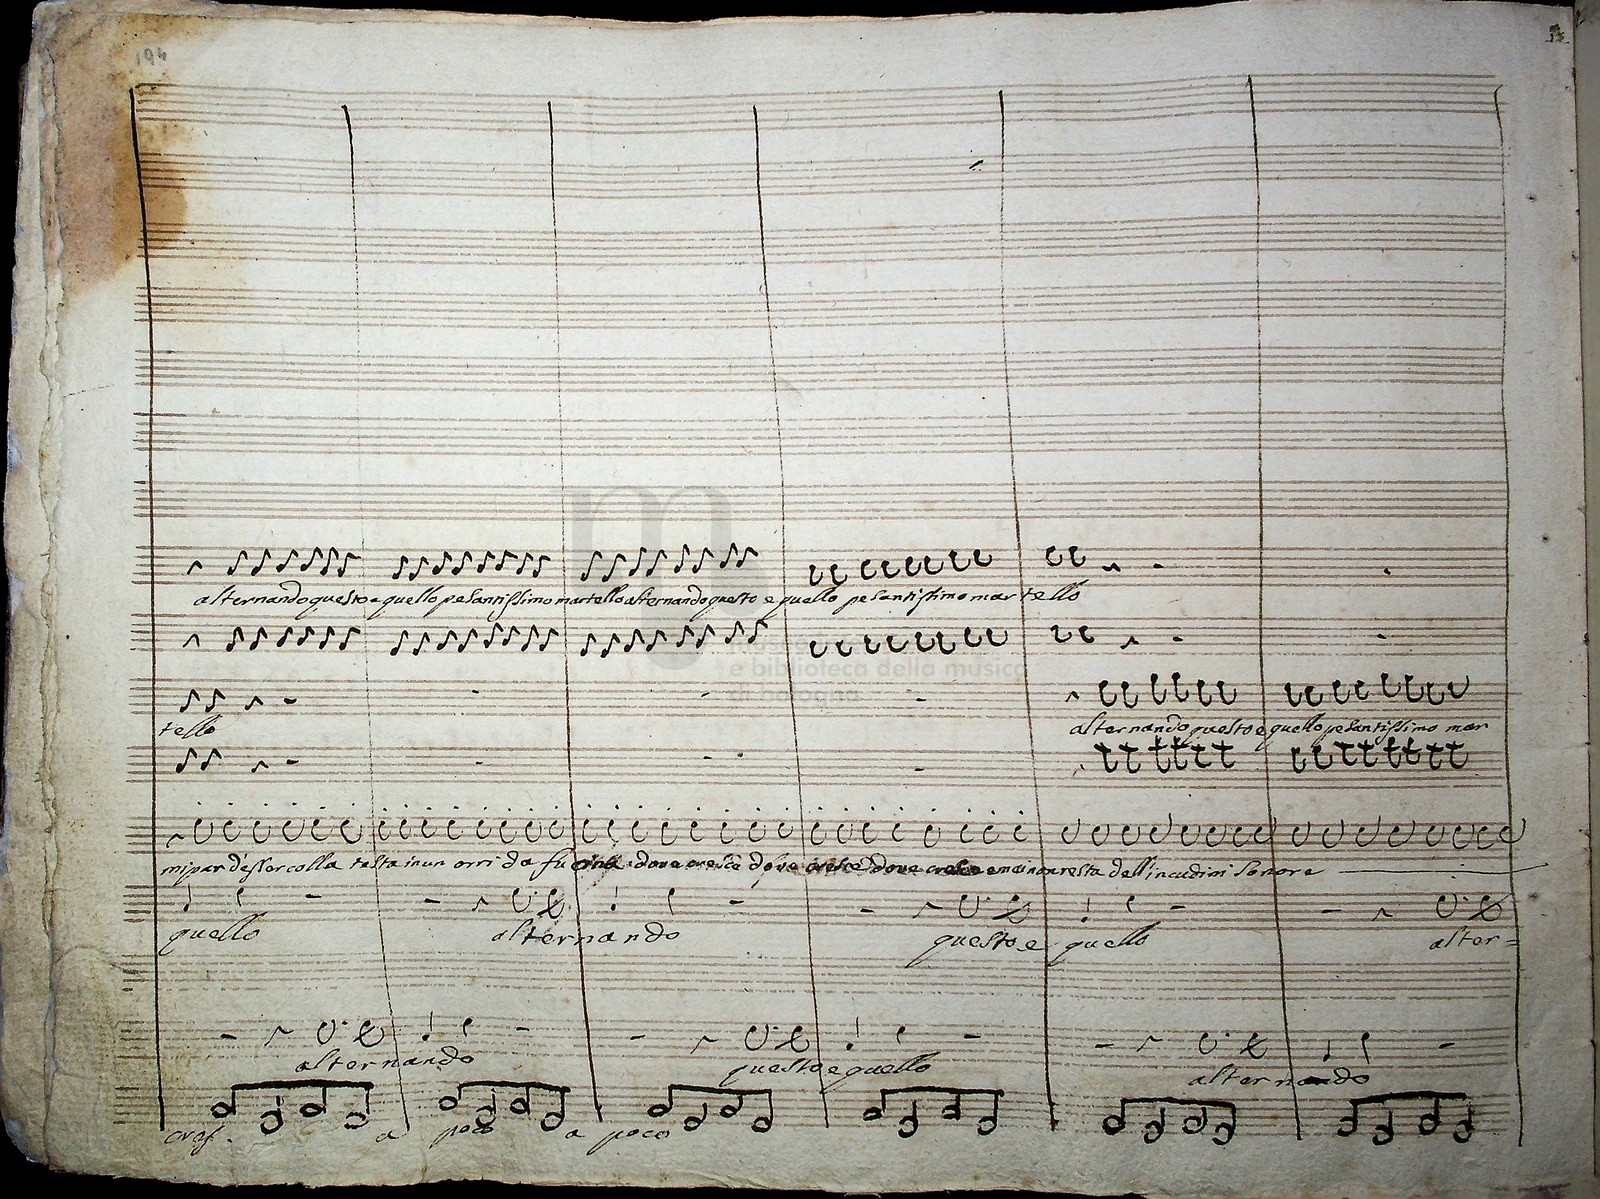 194
alternando questo e quello pesantissimo martello alternando questo e quello pesantissimo martello
museo
e biblioteca della musica
di bologna
tello
alternando questo e quello pesantissimo mar
mi par d'esser colla testa in un orrida fucina dove cresce dove cresce dove cresce e mai non resta dell'incudini sonore
quello alternando questo e quello alter=
alternando questo e quello alternando
cresc. a poco a poco